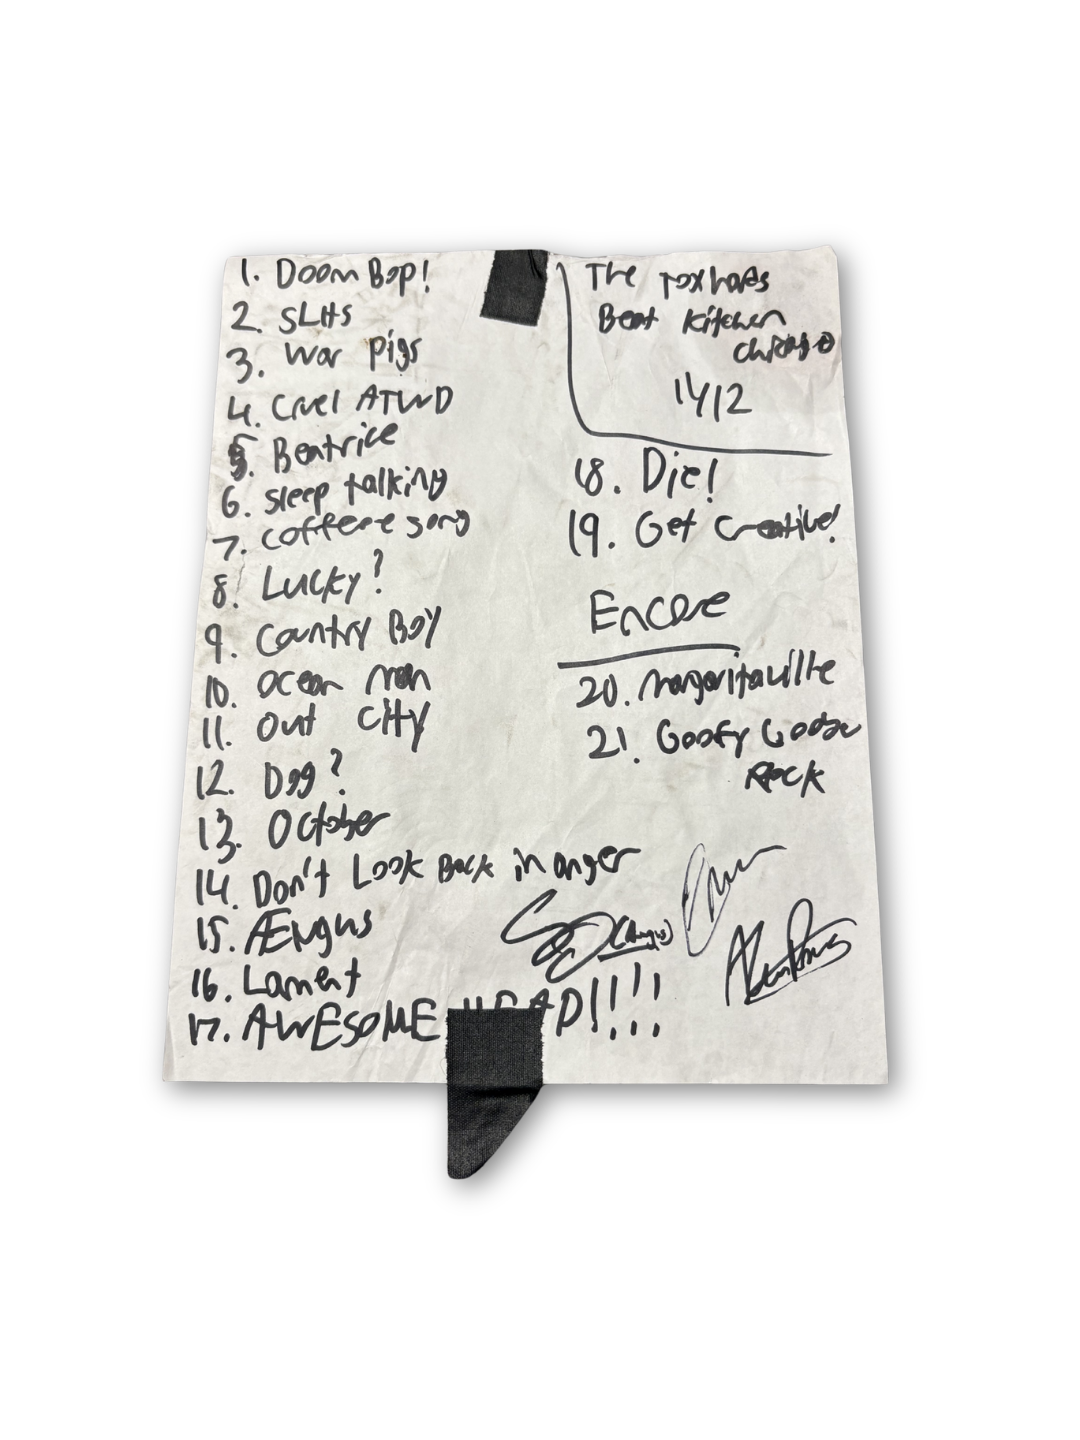 1. Doom Bop!
2. SLHS
3. War Pigs
4. Cruel ATWD
5. Beatrice
6. Sleep talking
7. Coffeee song
8. Lucky?
9. Country Boy
10. Ocean man
11. Out City
12. Dog?
13. October
14. Don't Look Back in anger
15. Ængus
16. Lament
17. AWESOME HEAD!!!!
The Foxholes
Beat Kitchen
Chicago
18. Die!
19. Get Creative!
Encore
20. Margaritaville
21. Goofy Goober
Rock
(Angus)